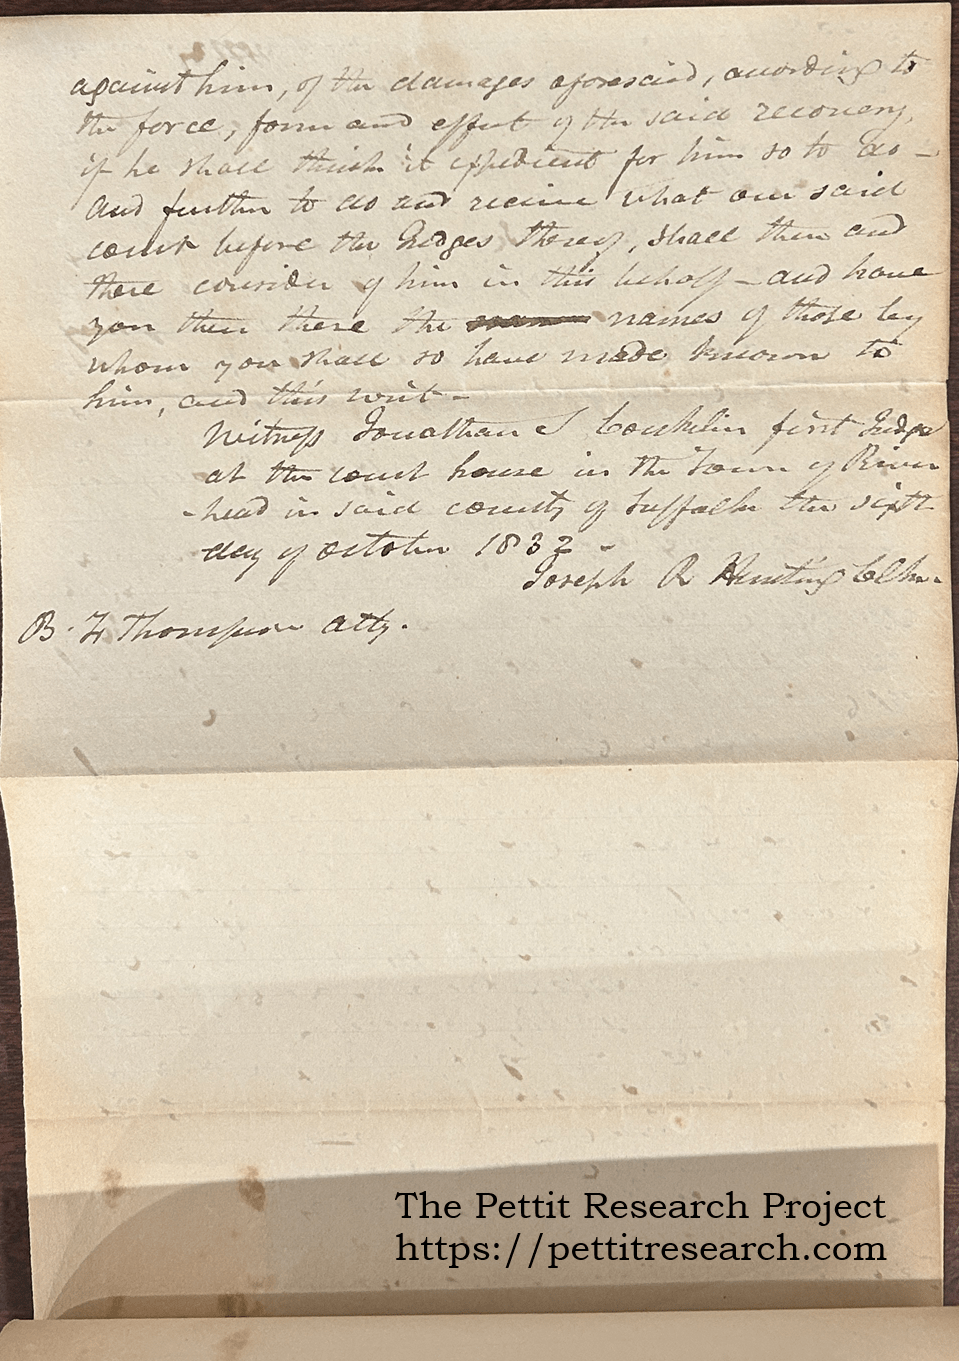 against him, of the damages aforesaid, according to
the force, form and effect of the said recovery,
if he shall think it expedient for him so to do –
and further to do and receive what our said
court before the Judges thereof, shall then and
there consider of him in this behalf – and have
you then there the names of those by
whom you shall so have made known to
him, and this writ –
Witness Jonathan S Conklin first Judge
at the court house in the Town of River
-head in said county of Suffolk the sixth
day of october 1832 -
Joseph R Hunting Clk.
B. F Thompson atty.
The Pettit Research Project
https://pettitresearch.com